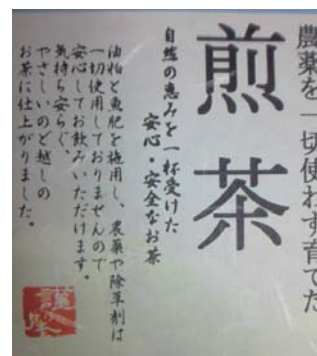 農薬を一切使わず育てた
煎茶
自然の恵みを一杯受けた
安心・安全なお茶
油粕と魚肥を施用し、農薬や除草剤は
一切使用しておりませんので
安心してお飲みいただけます。
気持ち安らぐ、
やさしいのど越しの
お茶に仕上がりました。
謹製